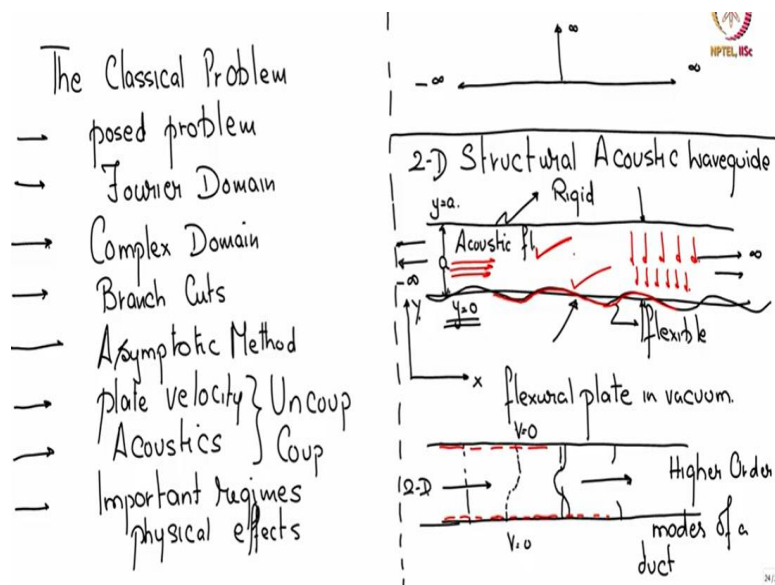 The Classical Problem
→ posed problem
→ Fourier Domain
→ Complex Domain
→ Branch Cuts
→ Asymptotic Method
→ plate velocity } Uncoup
→ Acoustics } Coup
→ Important regimes
physical effects
NPTEL, IISc
∞
-∞ ∞
2-D Structural Acoustic waveguide
y=a. Rigid
Acoustic fl.
a
∞
-∞
y=0
Y
flexible
x
flexural plate in vacuum.
V=0
2-D Higher Order
modes of a
V=0
duct